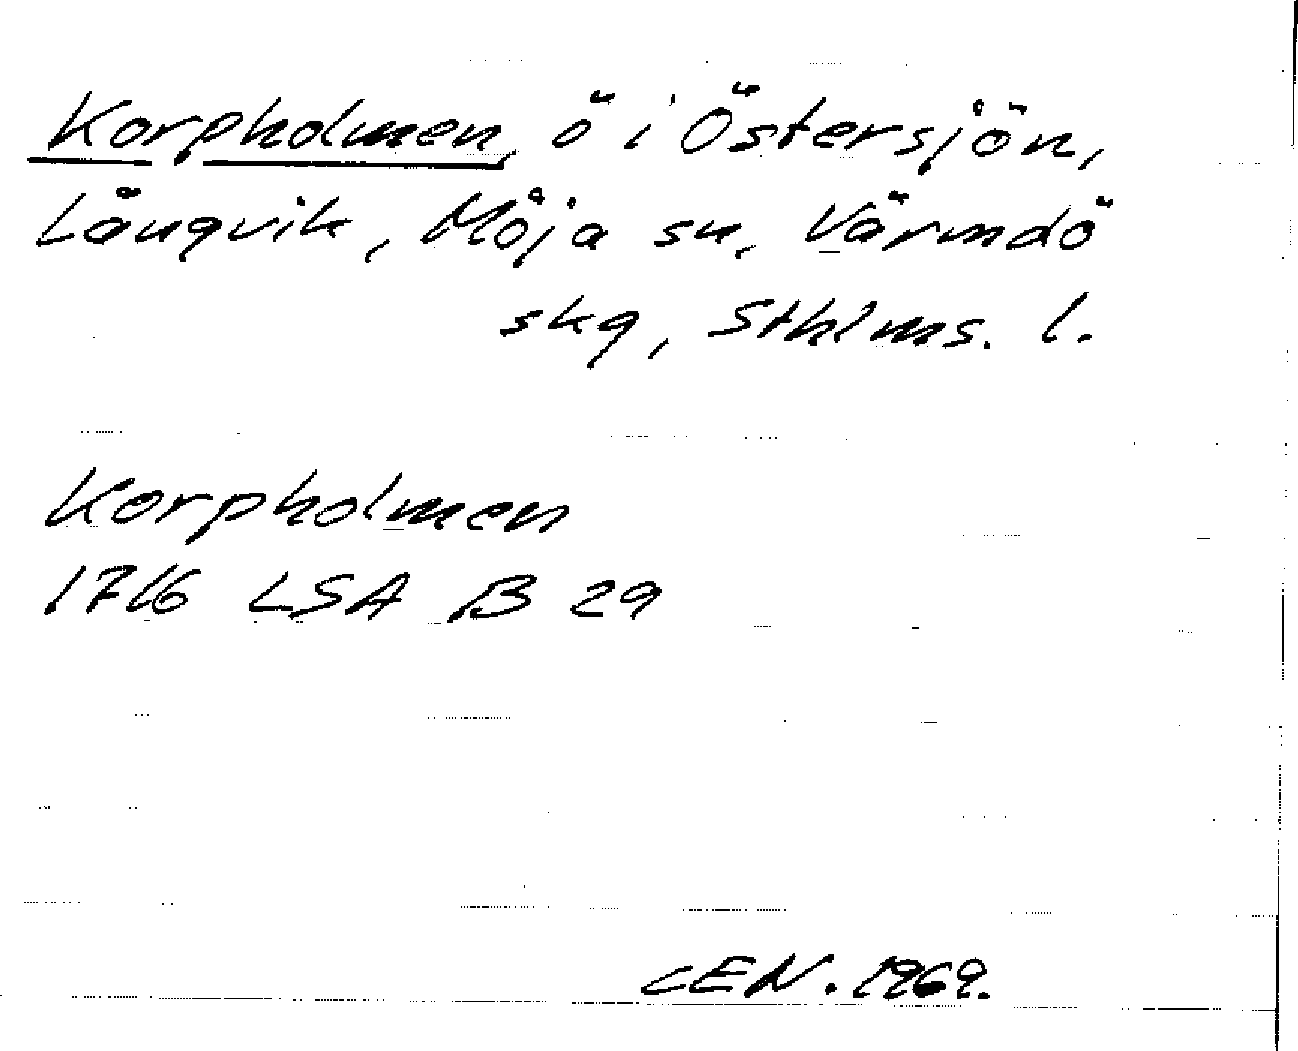 Korpholmen, ö i Östersjön,
Långvik, Möja sn, Värmdö
skg, Sthlms. l.
Korpholmen
1716 LSA B 29
CEN. 1969.